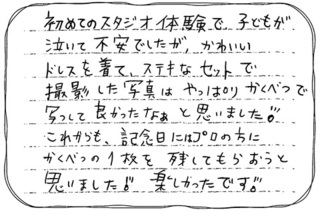 初めてのスタジオ体験で、子どもが
泣いて不安でしたが、かわいい
ドレスを着て、ステキなセットで
撮影した写真は やっぱり かくべつで
写って良かったなぁ と思いました!!!
これからも、記念日にはプロの方に
かくべつの1枚を 残してもらおうと
思いました!! 楽しかったです!!